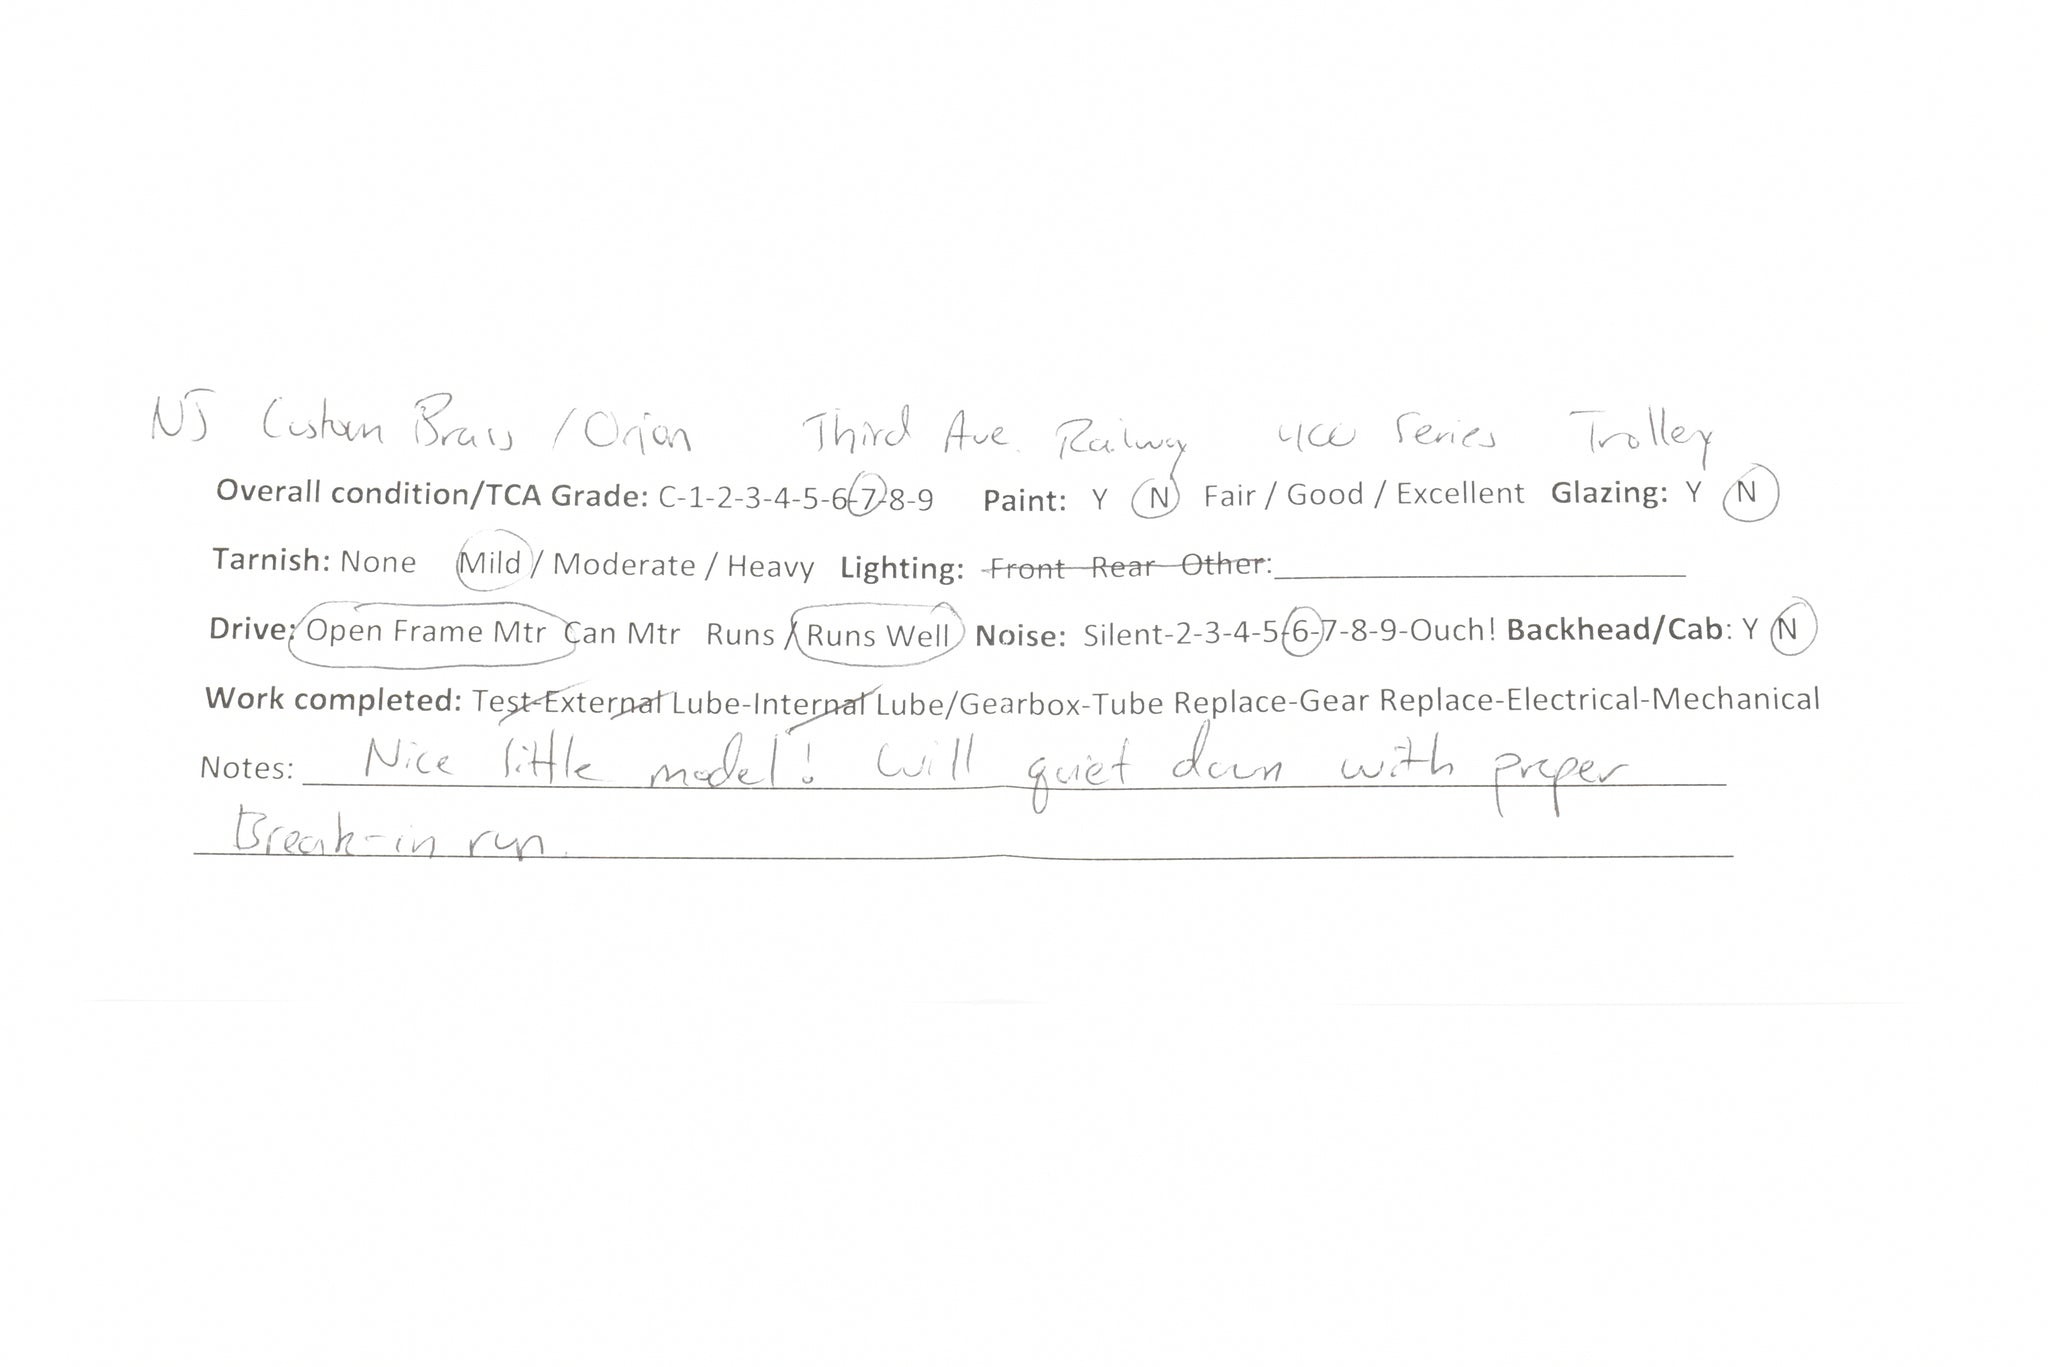 NJ Custom Brass / Orion Third Ave. Railway 400 Series Trolley
Overall condition/TCA Grade: C-1-2-3-4-5-6-7-8-9 Paint: Y N Fair / Good / Excellent Glazing: Y N
Tarnish: None Mild / Moderate / Heavy Lighting: Front Rear Other:
Drive: Open Frame Mtr Can Mtr Runs / Runs Well Noise: Silent-2-3-4-5-6-7-8-9-Ouch! Backhead/Cab: Y N
Work completed: Test-External Lube-Internal Lube/Gearbox-Tube Replace-Gear Replace-Electrical-Mechanical
Notes: Nice little model! Will quiet down with proper
Break-in run.